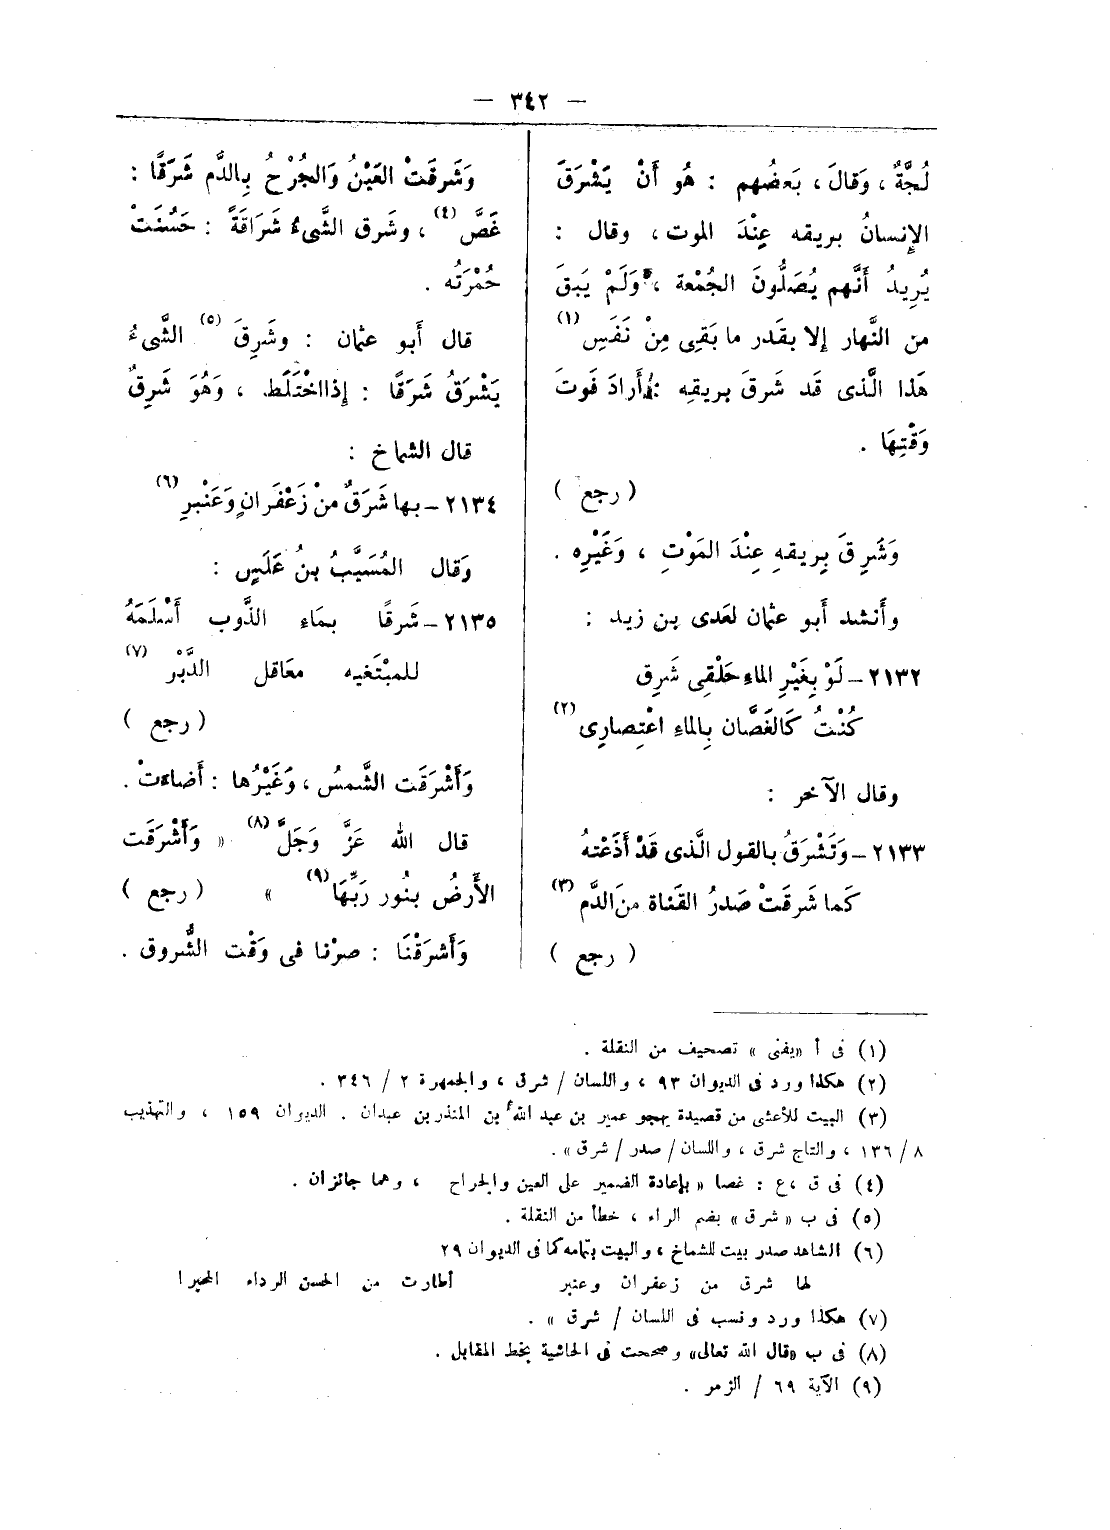 — ٣٤٢ —
لُجَّةٌ ، وَقالَ ، بَعضُهم : هُو أَنْ يَشْرَقَ
الإِنسانُ بريقه عِنْدَ الموت ، وقال :
يُرِيدُ أَنَّهم يُصَلُّونَ الجُمْعة ، وَلَمْ يَبقَ
من النَّهار إلا بقَدر ما بَقِى مِنْ نَفَسِ (١)
هَذا الَّذى قَد شَرقَ بريقِه : أَرادَ فَوتَ
وَقْتِهَا .
( رجع )
وَشَرِقَ بِرِيقهِ عِنْدَ المَوْتِ ، وَغَيْرِه .
وأَنشد أَبو عثمان لعَدى بن زيد :
٢١٣٢ – لَوْ بِغَيْرِ الماءِ حَلْقِى شَرِق
كُنْتُ كَالغَصَّان بِالماءِ اعْتِصارِى (٢)
وقال الآخر :
٢١٣٣ – وَتَشْرَقُ بالقول الَّذى قَدْ أَذَعْتهُ
كَما شَرقَتْ صَدرُ القَناة منَ الدَّم (٣)
( رجع )
وَشَرقَتْ العَيْنُ وَالجُرْحُ بِالدَّم شَرَقًا :
غَصَّ (٤) ، وشَرق الشَّىءُ شَرَاقَةً : حَسُنَتْ
حُمْرَتُه .
قال أَبو عثمان : وشَرِقَ (٥) الشَّىءُ
يَشْرَقُ شَرَقًا : إذا اخْتَلَط ، وَهُوَ شَرِقٌ
قال الشماخ :
٢١٣٤ – بها شَرَقٌ منْ زَعْفَرانٍ وَعَنْبرِ (٦)
وَقال المُسَيَّبُ بنُ عَلَسٍ :
٢١٣٥ – شَرقًا بمَاءِ الذَّوب أَسْلَمَهُ
للمبْتَغيه معَاقل الدَّبْر (٧)
( رجع )
وَأَشْرَقَت الشَّمسُ ، وَغَيْرُها : أَضاءَتْ .
قال الله عَزَّ وَجَلَّ (٨) « وَأَشْرَقَت
الأَرضُ بنُور رَبِّهَا (٩) » ( رجع )
وَأَشرَقْنَا : صرْنا فى وَقْت الشُّروق .
(١) فى أ «يفنى » تصحيف من النقلة .
(٢) هكذا ورد فى الديوان ٩٣ ، واللسان / شرق ، والجمهرة ٢ / ٣٤٦ .
(٣) البيت للأعشى من قصيدة يهجو عمير بن عبد الله بن المنذر بن عبدان . الديوان ١٥٩ ، والتهذيب
٨ / ١٣٦ ، والتاج شرق ، واللسان / صدر / شرق » .
(٤) فى ق ، ع : غصا « بإعادة الضمير على العين والجراح ، وهما جائزان .
(٥) فى ب « شرق » بضم الراء ، خطأ من النقلة .
(٦) الشاهد صدر بيت للشماخ ، والبيت بتمامه كما فى الديوان ٢٩
لها شرق من زعفران وعنبر أطارت من الحسن الرداء المحبرا
(٧) هكذا ورد ونسب فى اللسان / شرق » .
(٨) فى ب «قال الله تعالى» وصححت فى الحاشية بخط المقابل .
(٩) الآية ٦٩ / الزمر .